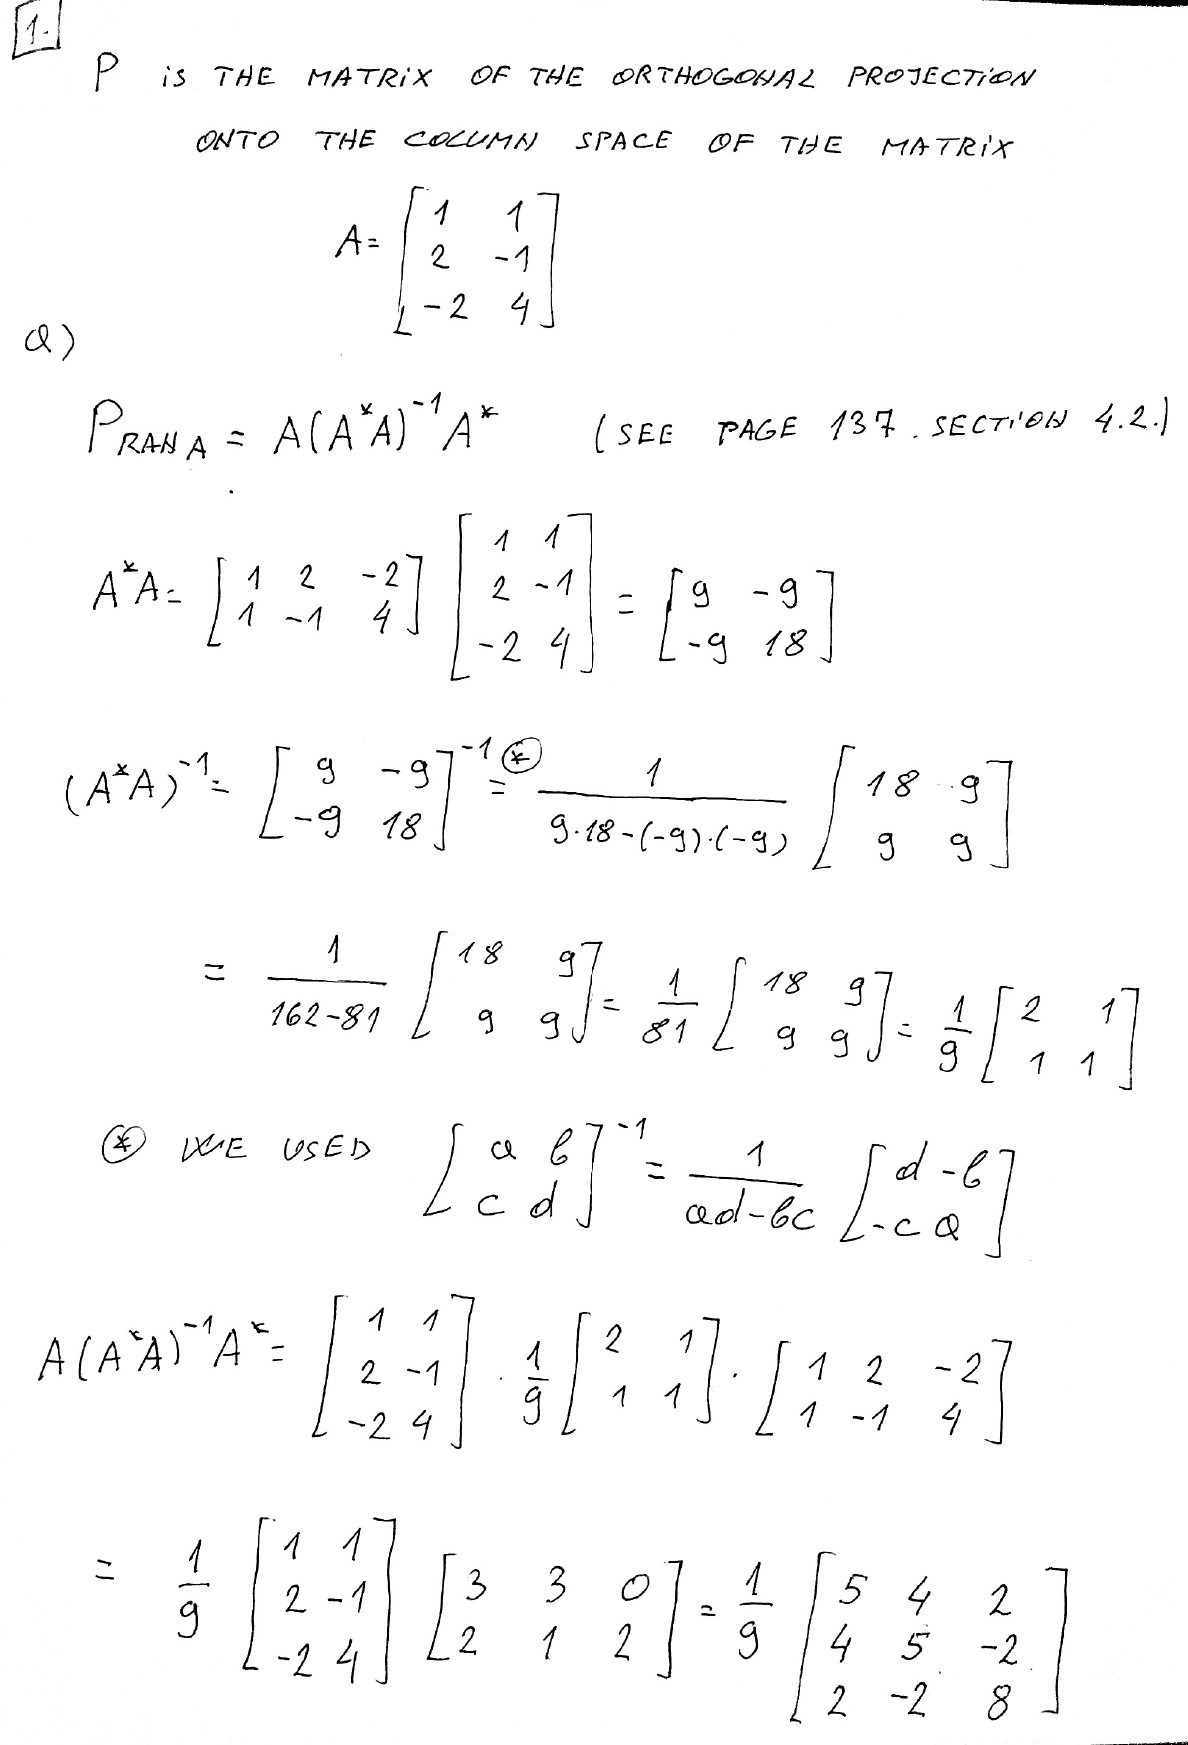 1.
P is THE MATRiX OF THE ORTHOGONAL PROJECTiON
ONTO THE COLUMN SPACE OF THE MATRiX
A = [1 1; 2 -1; -2 4]
a)
P RAN A = A(A*A)⁻¹A* (SEE PAGE 137. SECTiON 4.2.)
A*A = [1 2 -2; 1 -1 4] [1 1; 2 -1; -2 4] = [9 -9; -9 18]
(A*A)⁻¹ = [9 -9; -9 18]⁻¹ =⊛ 1/(9·18-(-9)·(-9)) [18 9; 9 9]
= 1/(162-81) [18 9; 9 9] = 1/81 [18 9; 9 9] = 1/9 [2 1; 1 1]
⊛ WE USED [a b; c d]⁻¹ = 1/(ad-bc) [d -b; -c a]
A(A*A)⁻¹A* = [1 1; 2 -1; -2 4] · 1/9 [2 1; 1 1] · [1 2 -2; 1 -1 4]
= 1/9 [1 1; 2 -1; -2 4] [3 3 0; 2 1 2] = 1/9 [5 4 2; 4 5 -2; 2 -2 8]